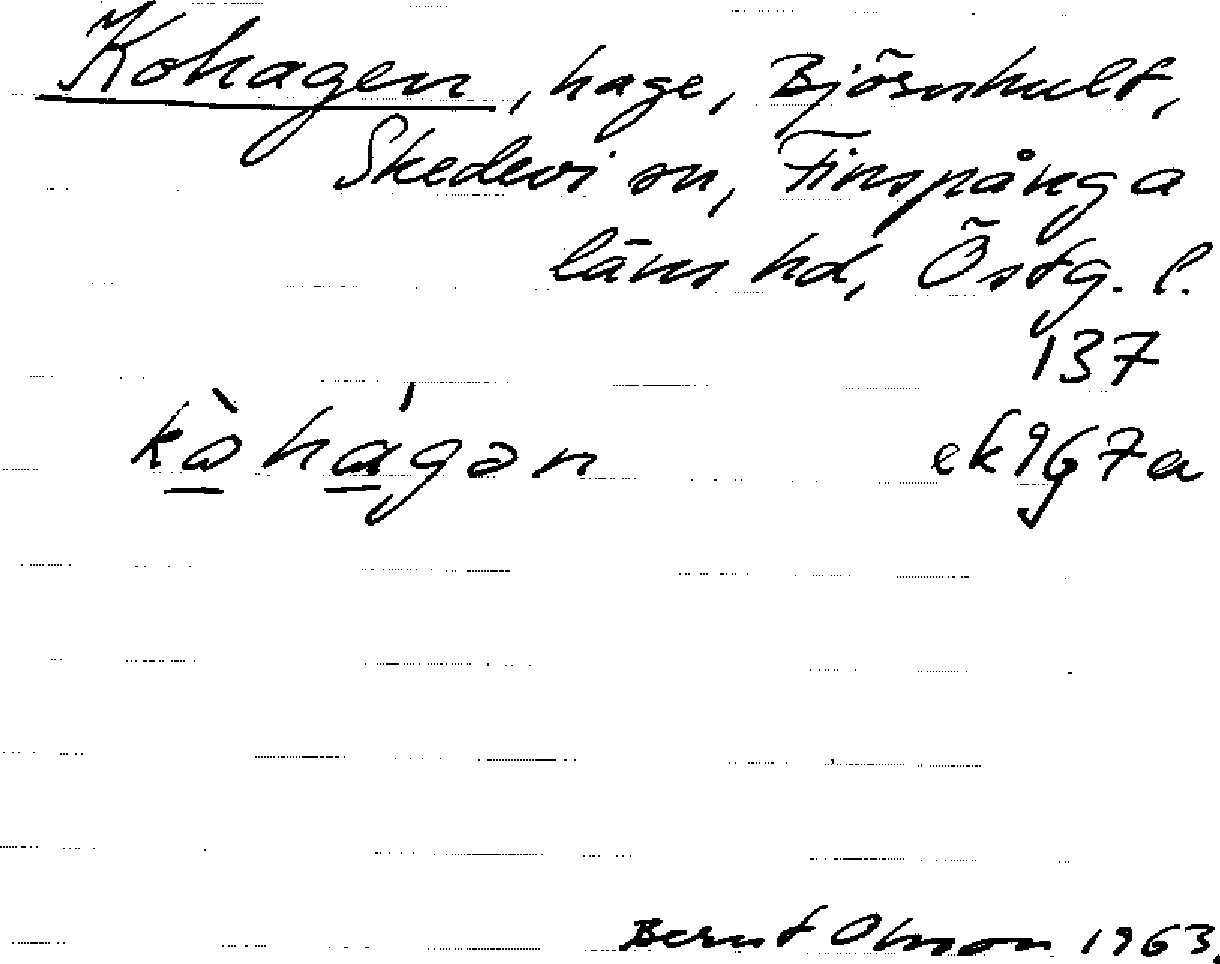 Kohagen, hage, Björnhult,
Skedevi sn, Finspånga
läns hd, Östg. l.
137
kòhágən ek9G7a
Bernt Olsson 1963.